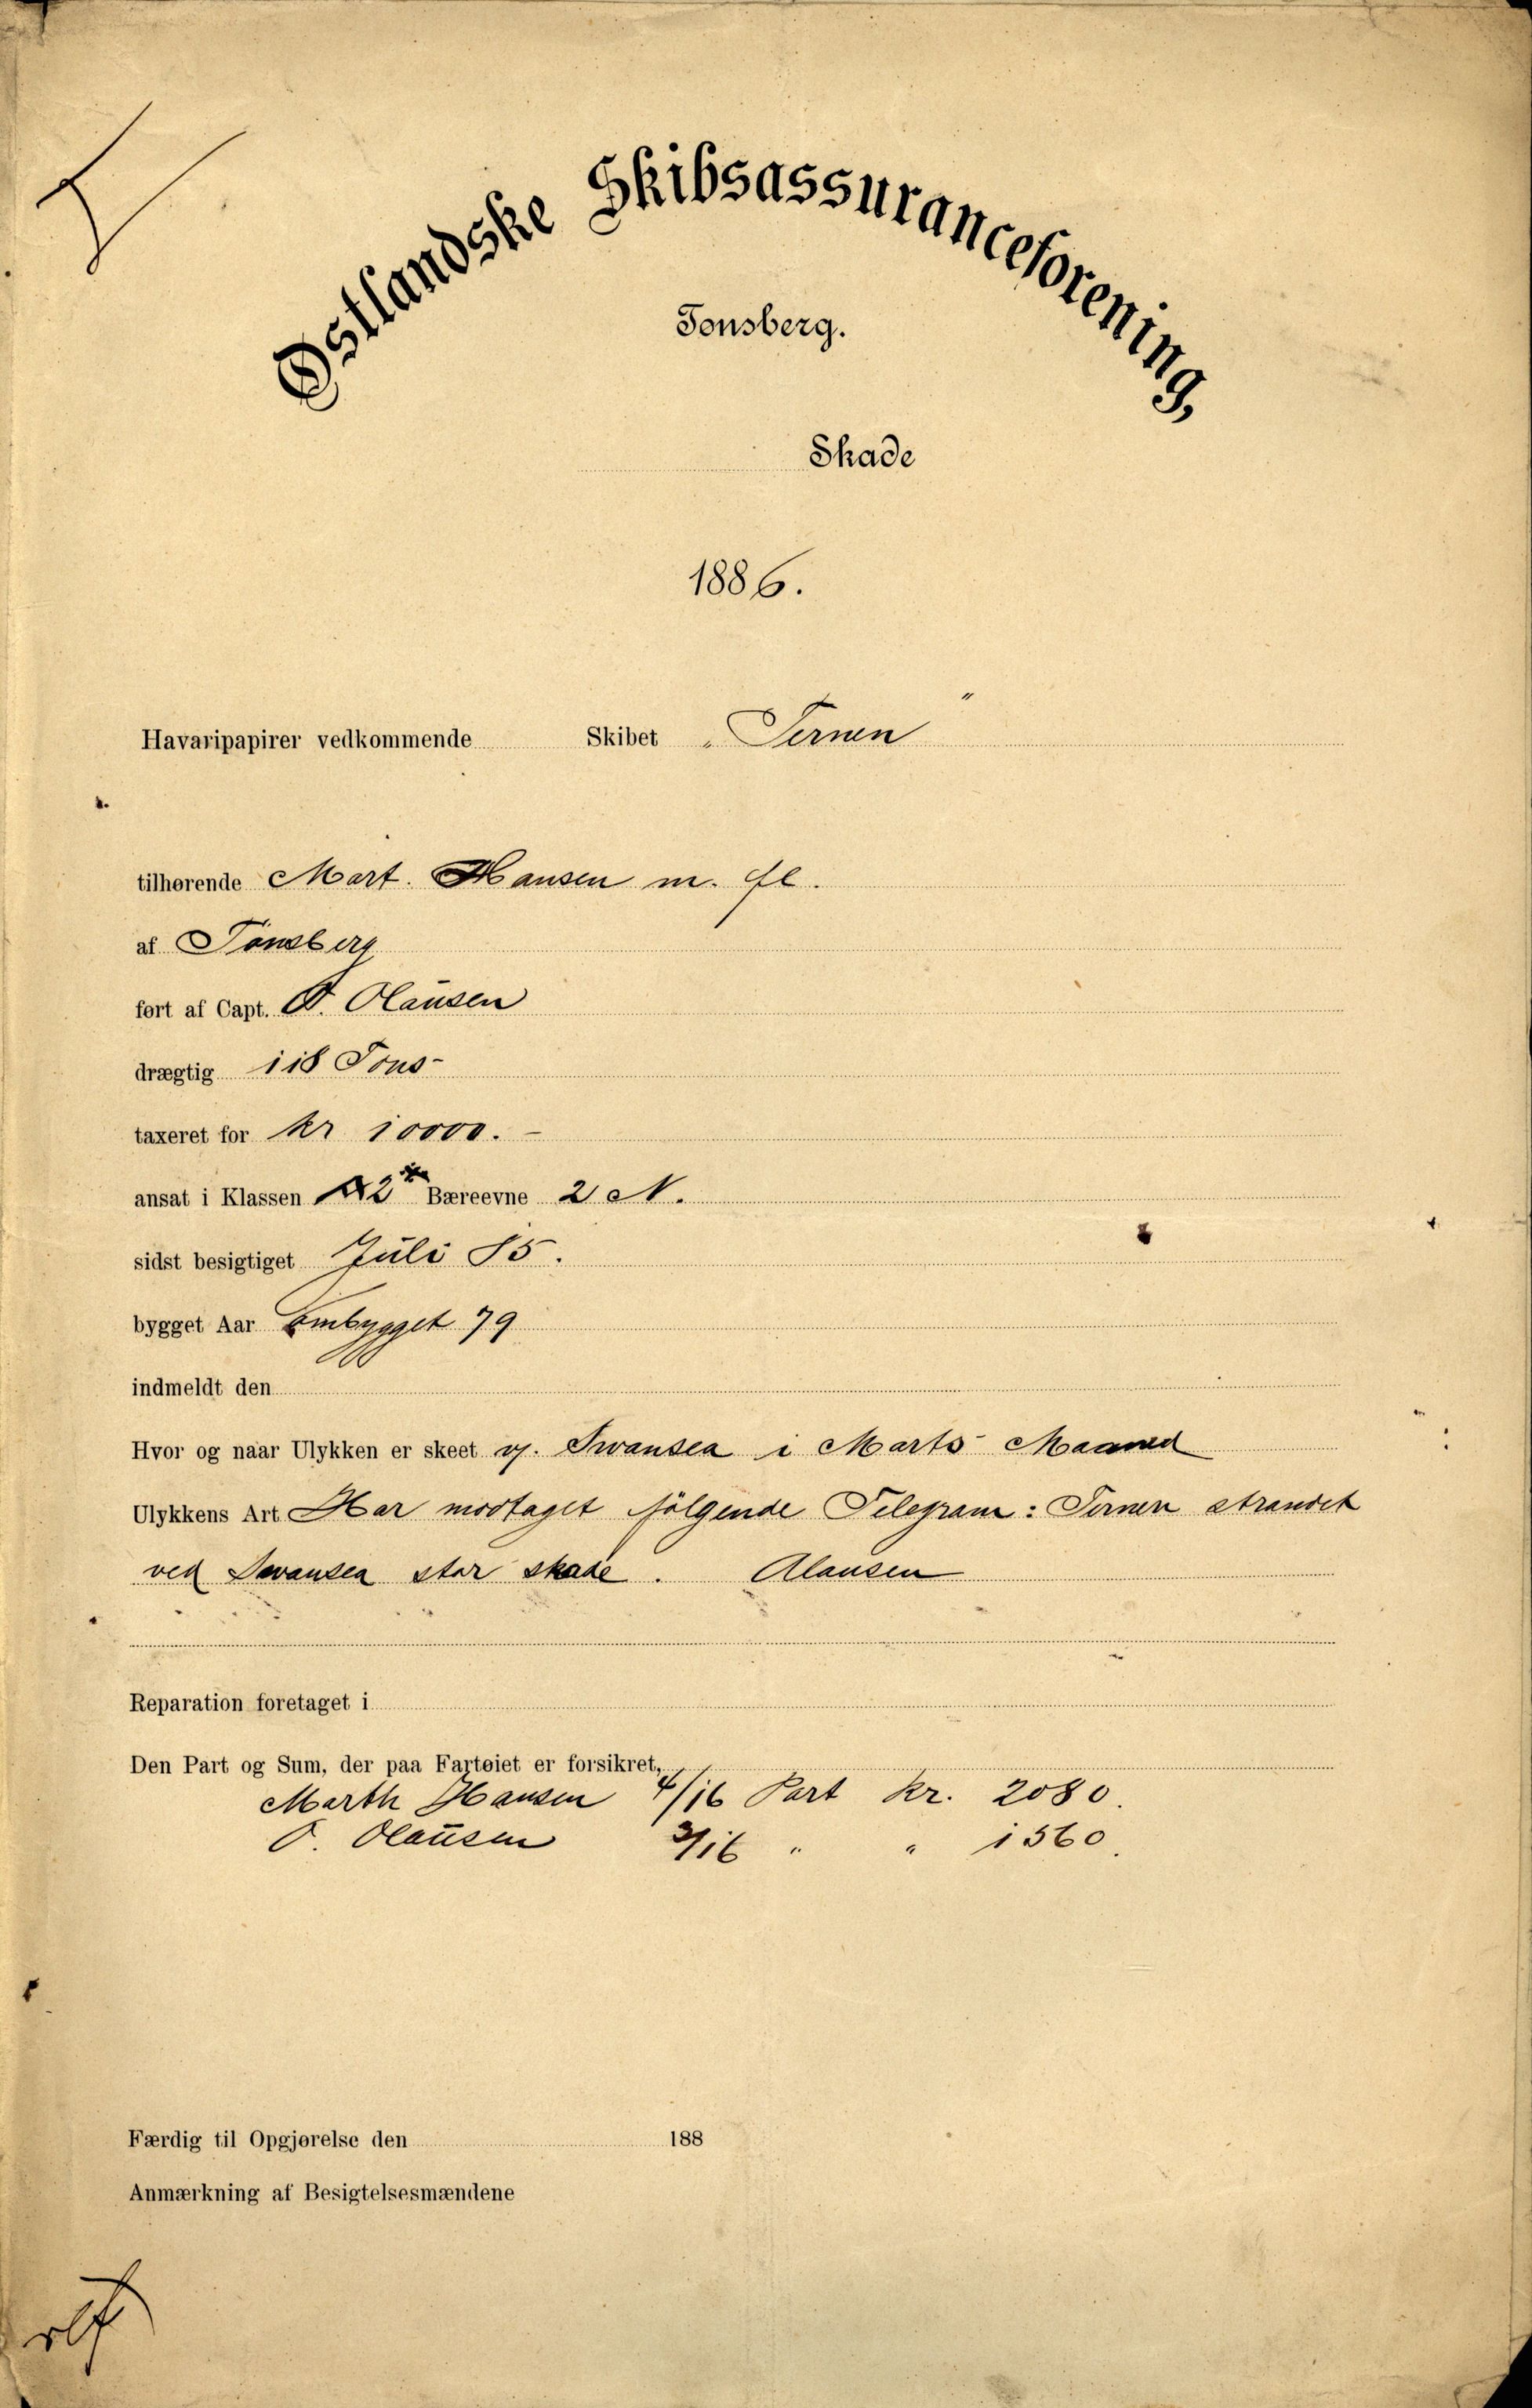 Østlandske Skibsassuranceforening,
Tønsberg.
Skade
1886.
Havaripapirer vedkommende Skibet „Ternen"
tilhørende Mart. Hansen m. fl.
af Tønsberg
ført af Capt. O. Olausen
drægtig 118 Tons
taxeret for Kr 10000. –
ansat i Klassen A2 Bæreevne 2 N.
sidst besigtiget Juli 85.
bygget Aar ombygget 79
indmeldt den
Hvor og naar Ulykken er skeet v. Swansea i Marts Maaned
Ulykkens Art Har modtaget følgende Telegram: Ternen strandet
ved Swansea stor skade. Olausen
Reparation foretaget i
Den Part og Sum, der paa Fartøiet er forsikret,
Marth Hansen 4/16 Part Kr. 2080.
O. Olausen 3/16 " " 1560.
Færdig til Opgjørelse den 188
Anmærkning af Besigtelsesmændene